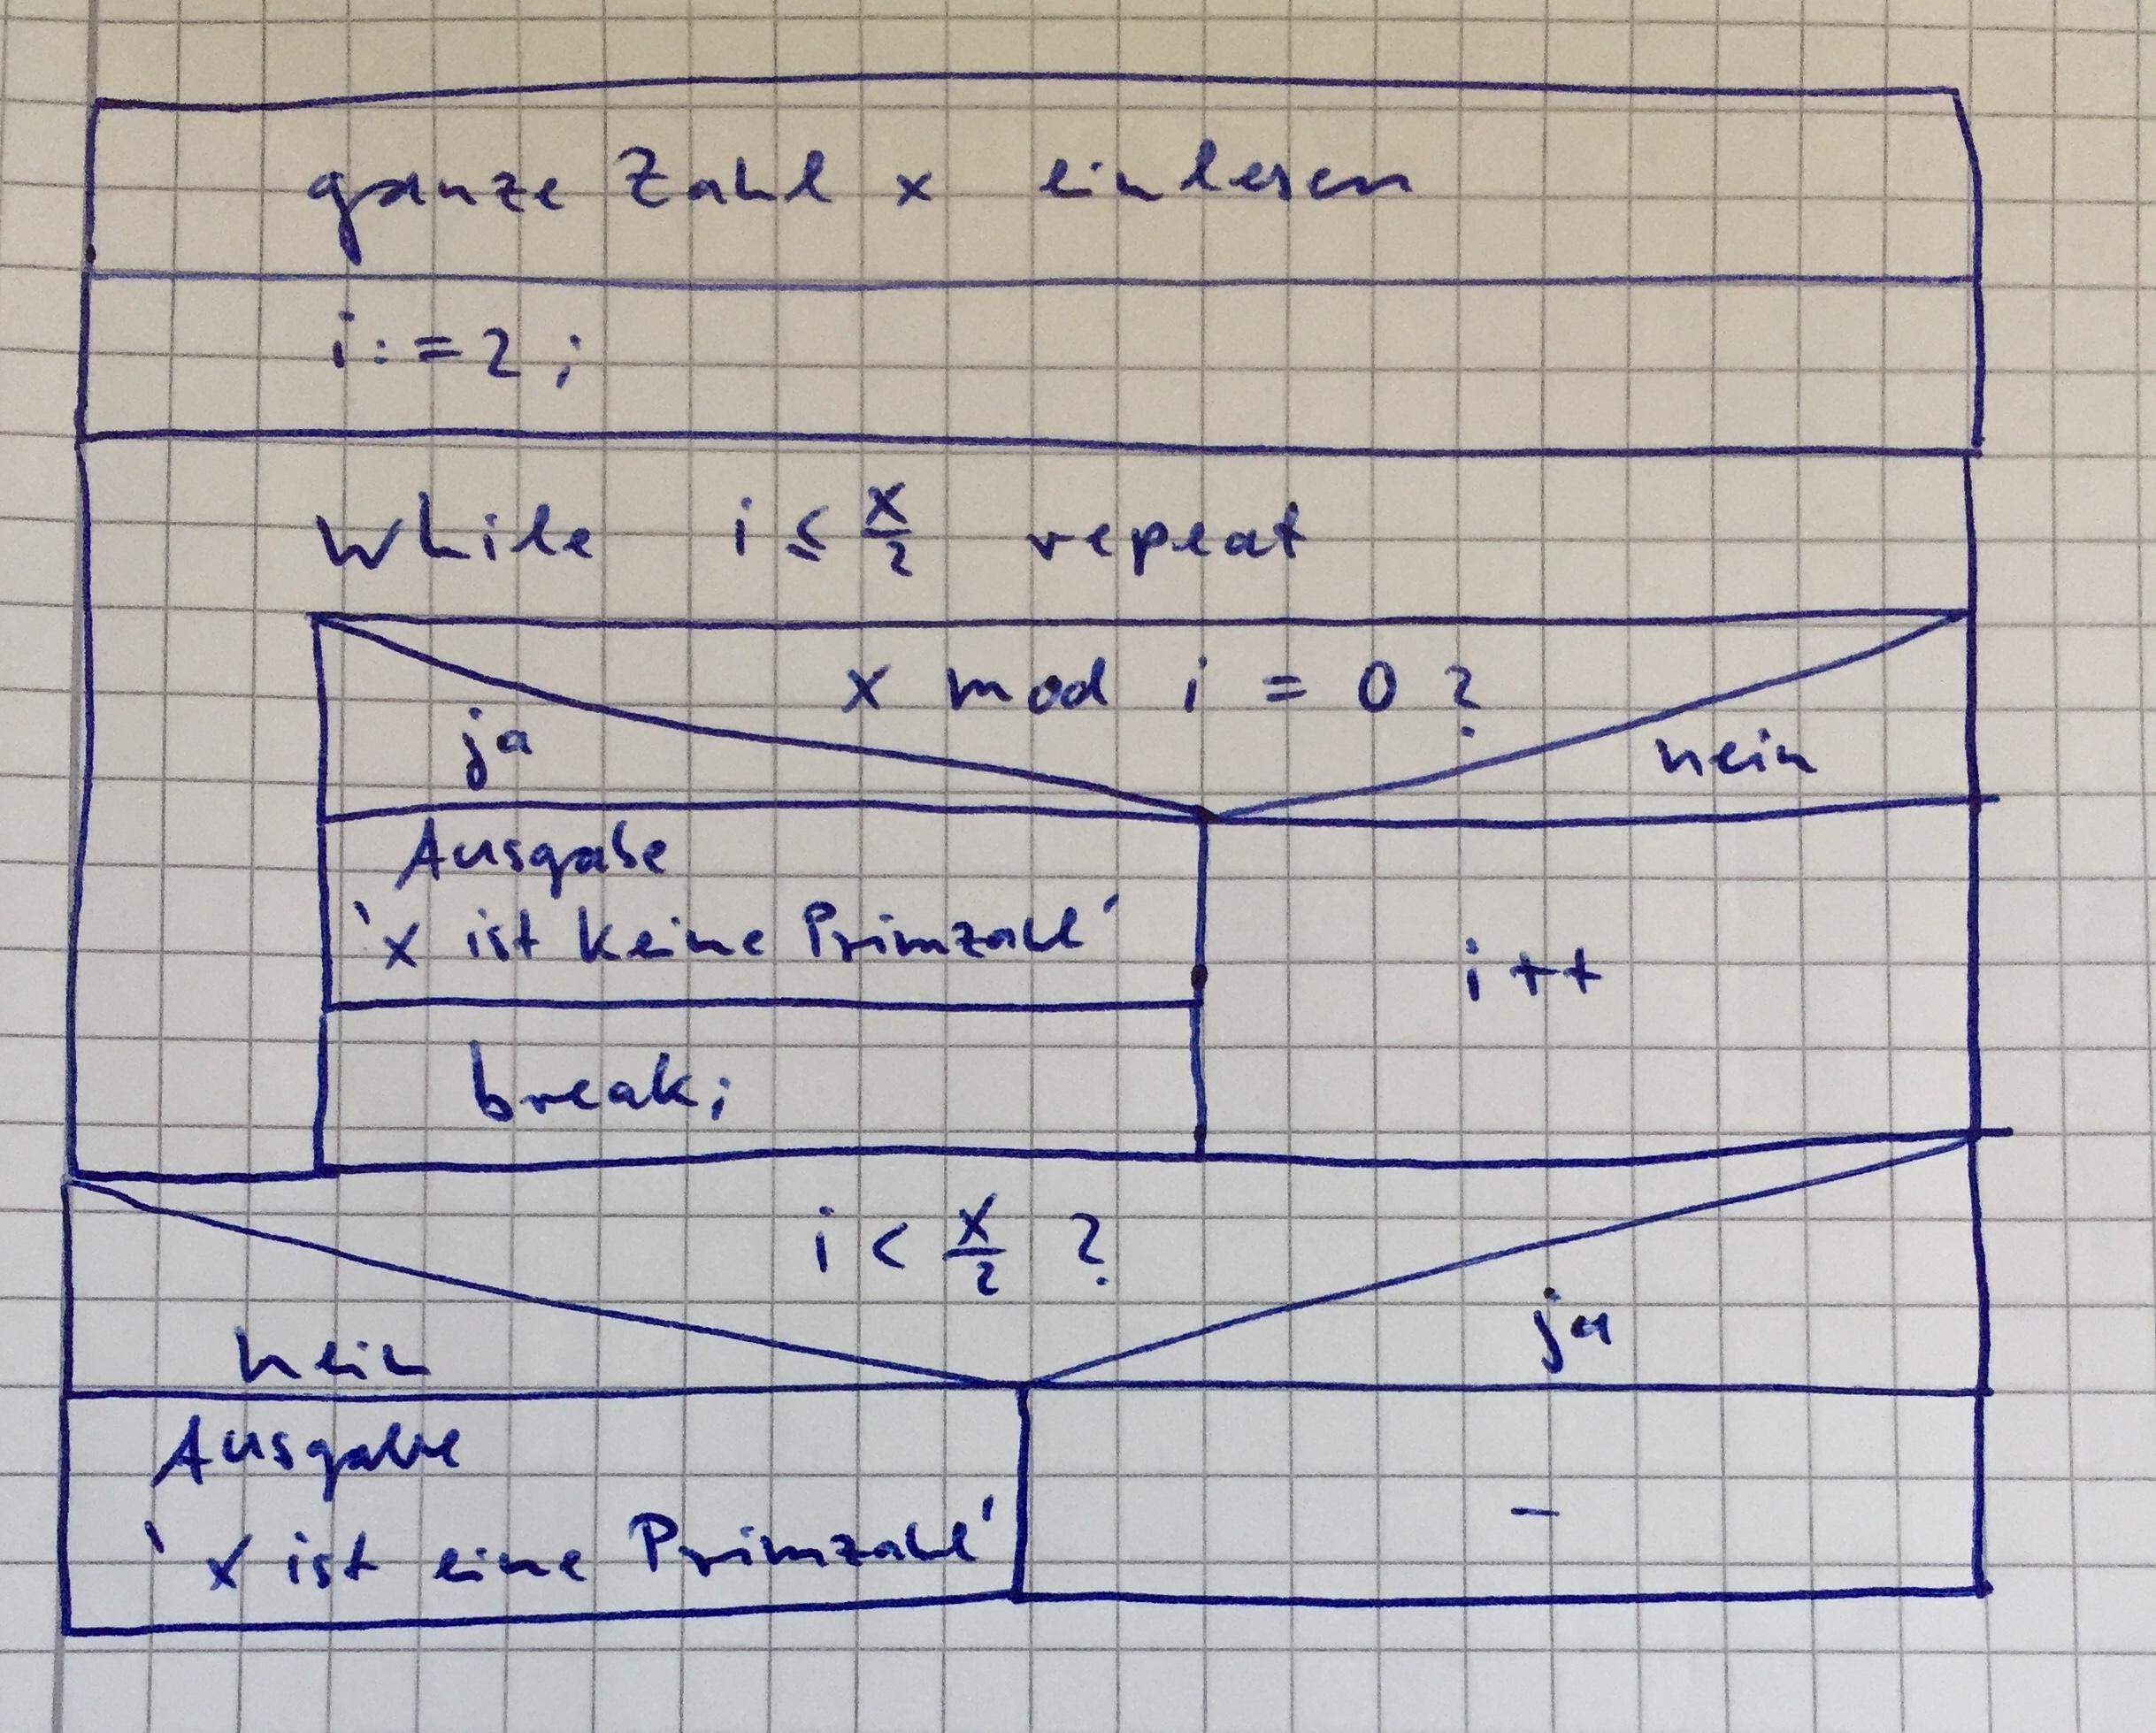 ganze Zahl x einlesen
i:=2;
While i ≤ x/2 repeat
x mod i = 0 ?
ja
nein
Ausgabe
'x ist keine Primzahl'
i++
break;
i < x/2 ?
nein
ja
Ausgabe
'x ist eine Primzahl'
-